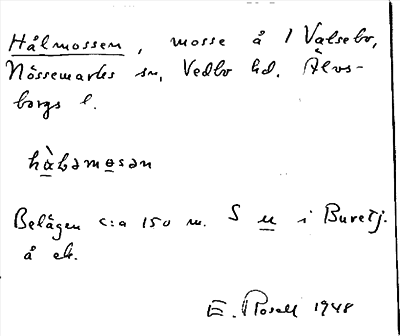 Hålmossen, mosse å 1 Valsebo,
Nössemarks sn, Vedbo hd. Älvs-
borgs l.
hàləmosən
Belägen c:a 150 m. S u i Buretj.
å ek.
E. Rosell 1948